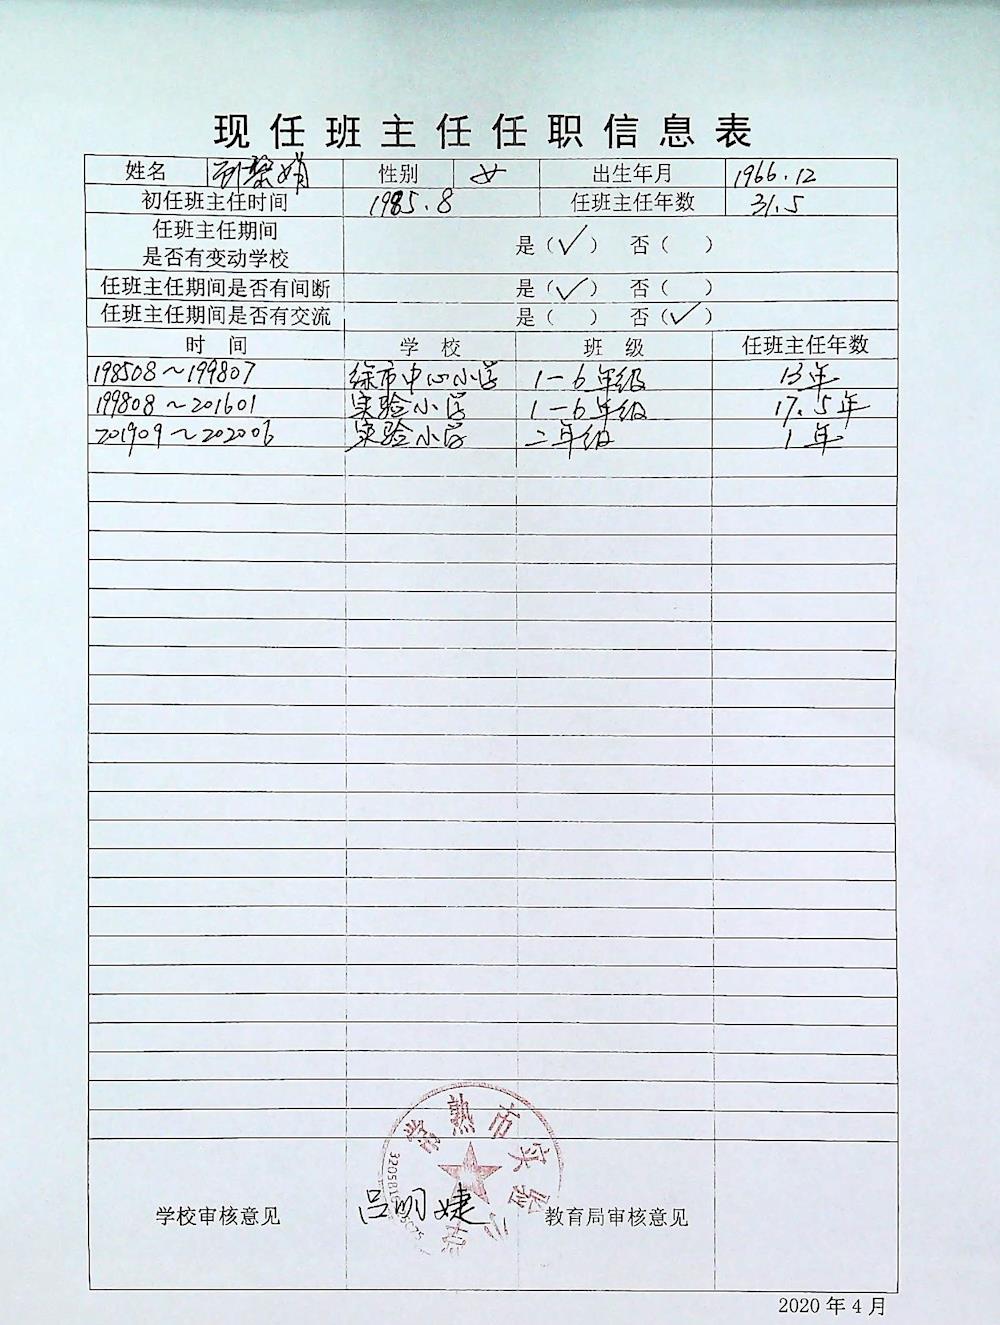 现任班主任任职信息表
姓名 性别 女 出生年月 1966.12
初任班主任时间 1985.8 任班主任年数 31.5
任班主任期间
是否有变动学校 是（✓） 否（ ）
任班主任期间是否有间断 是（✓） 否（ ）
任班主任期间是否有交流 是（ ） 否（✓）
时 间 学 校 班 级 任班主任年数
198508～199807 徐市中心小学 1-6年级 13年
199808～201601 实验小学 1-6年级 17.5年
201909～202006 实验小学 二年级 1年
常熟市实验小学
学校审核意见 吕明婕 教育局审核意见
2020年4月